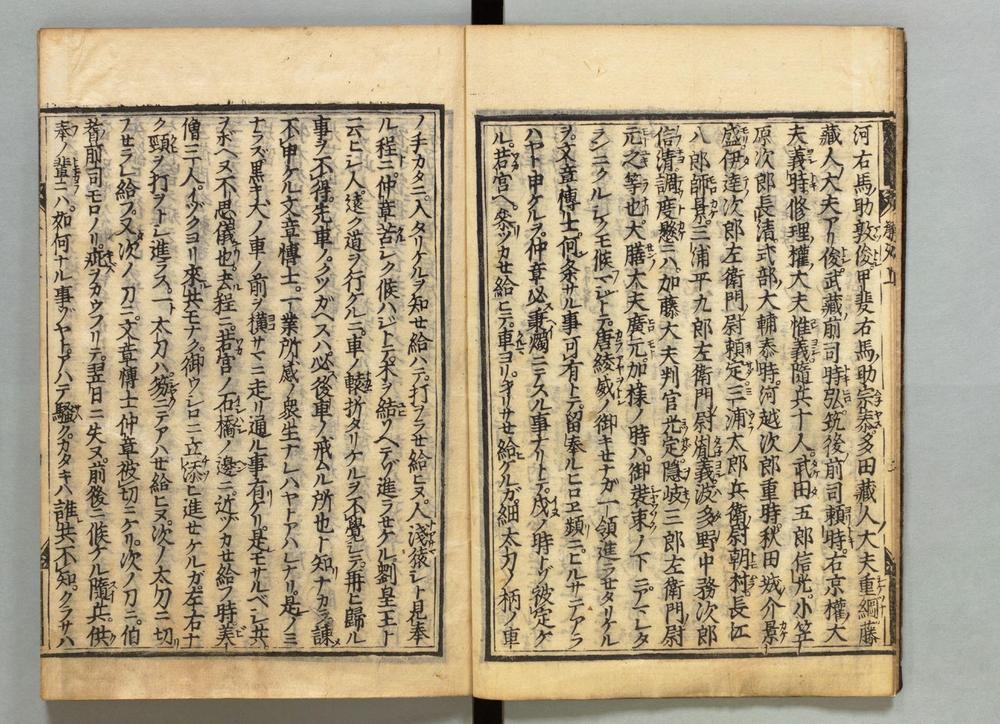 河右馬助敦俊甲斐右馬助宗泰多田藏人大夫重綱藤
藏人大夫アリ俊武藏前司時弘筑後前司頼時右京權大
夫義時修理權大夫惟義隨兵十人武田五郎信光小笠
原次郎長清式部大輔泰時河越次郎重時秋田城介景
盛伊達次郎左衛門尉頼定三浦太郎兵衛尉朝村長江
八郎師景三浦平九郎左衛門尉胤義波多野中務次郎
信清調度懸ニハ加藤大夫判官光定隱岐三郎左衛門尉
元之等也大膳大夫廣元加様ノ時ハ御裝束ノ下ニアマレタ
ランニクルシクモ候ベジトテ唐綾威ノ御キセナガ一領進ラセタリケル
ヲ文章博士何条サル事可有トテ留奉ルヒロヱ類ニヒルサテアラ
ハヤト申ケルヲ仲章必秉燭ニテスル事ナリトテ戌ノ時トゾ被定ケ
ル若宮ヘ参ノカセ給ヒテ車ヨリヲリサセ給ケルガ細太刀ノ柄ノ車
ノ手カタニ入タリケルヲ知セ給ハテ打ヲラセ給ヒヌ人淺猿シト見奉
ル程ニ仲章苦シク候ハジトテ木ヲ結ソヘテゾ進ラセケル劉皇王ト
云ヒシ人遠ク道ヲ行クルニ車ノ轅折タリケルヲ不覺シテ再ヒ歸ル
事ヲ不得先車ノクツガヘスハ必後車ノ戒ムル所也ト知ナカラ諌
不申ケル文章博士一業所感ノ衆生ナレハヤトアハレナリ是ノミ
ナラズ黒キ犬ノ車ノ前ヲ横サマニ走リ通ル事有ケリ是モサルベシ共
ヲボヘヌ不思儀也去程ニ若宮ノ石橋ノ邊ニ近ヅカセ給フ時美
僧三人イヅクヨリ來共モナク御ウシロニ立添ヒ進セケルガ左右ナ
ク頸ヲ打ヲトシ進ラス一ト太刀ハ笏ニテアハせ給ヒヌ次ノ太刀ニ切
フせラレ給フ又次ノ刀ニ文章博士仲章被切ニケリ次ノ刀ニ伯
耆前司モロノリ疵ヲカウフリテ翌日ニ失ヌ前後ニ候ケル隨兵供
奉ノ輩ニハ如何ナル事ゾヤトアハテ騒グカタキハ誰共不知クラサハ